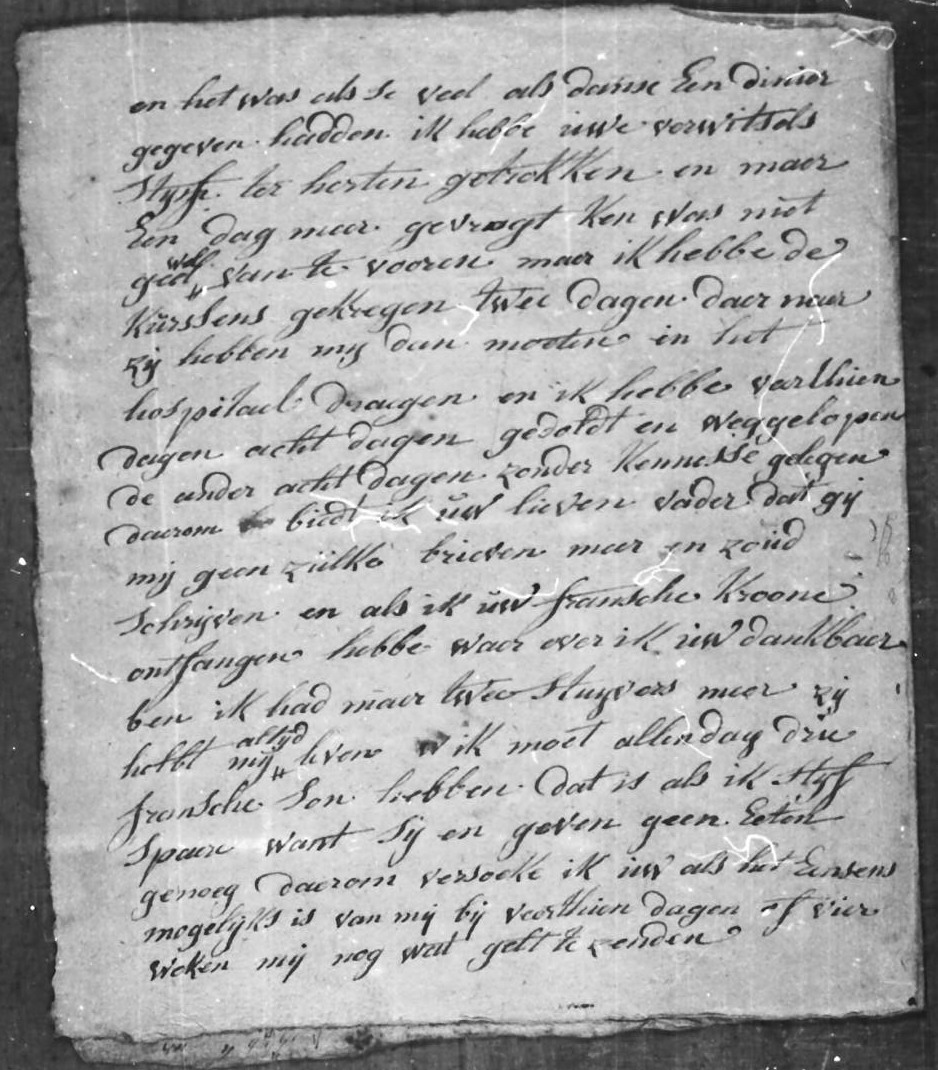 en het was als se veel als danse Een dinier
gegeven hadden ik hebbe uwe verwitsels
styf ter herten getrokken en maer
Een dag meer gevragt ken was niet
goed wel van te vooren maer ik hebbe de
kurssens gekregen twee dagen daer naer
zy hebben my dan moeten in het
hospitael draegen en ik hebbe varthien
dagen acht dagen gedoldt en weggelopen
de ander acht dagen zonder kennisse gelegen
daerom biedt ik uw lieven vader dat gij
mij geen zulke brieven meer en zoud
schrijven en als ik uw fransche kroone
ontfangen hebbe waer over ik uw dankbaer
ben ik had maer twee stuyvers meer zy
hebt mij altyd leven ik moet allendag drie
fransche son hebben dat is als ik styf
spaere want sij en geven geen Eeten
genoeg daerom versoeke ik uw als het Eensens
mogelijks is van mij bij veerthien dagen of vier
weken mij nog wat gelt te zenden